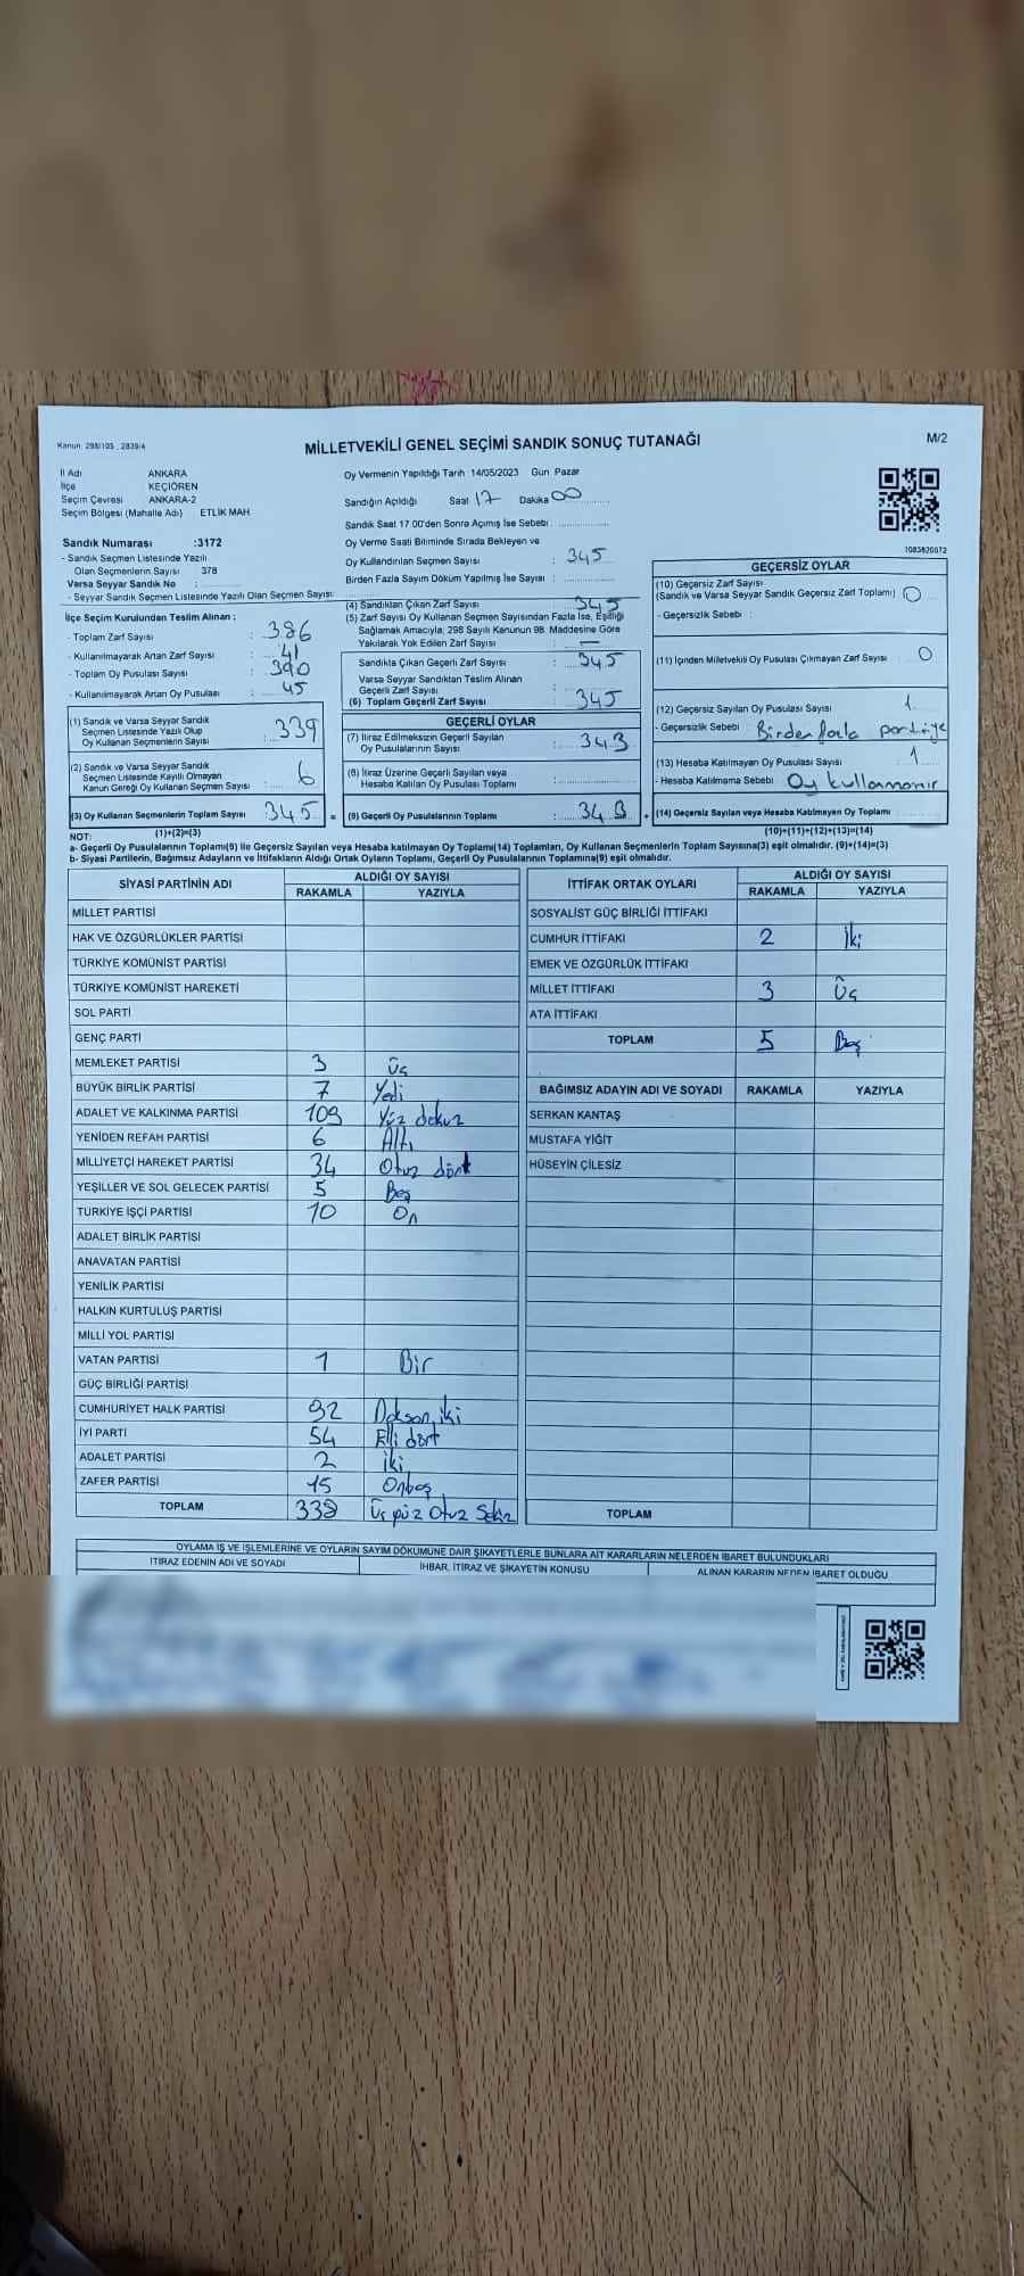 Kanun: 298/105 , 2839/4
MİLLETVEKİLİ GENEL SEÇİMİ SANDIK SONUÇ TUTANAĞI
M/2
İl Adı ANKARA
İlçe KEÇİÖREN
Seçim Çevresi ANKARA-2
Seçim Bölgesi (Mahalle Adı) ETLİK MAH.
Sandık Numarası :3172
- Sandık Seçmen Listesinde Yazılı
Olan Seçmenlerin Sayısı 378
Varsa Seyyar Sandık No :
- Seyyar Sandık Seçmen Listesinde Yazılı Olan Seçmen Sayısı:
İlçe Seçim Kurulundan Teslim Alınan :
- Toplam Zarf Sayısı : 386
- Kullanılmayarak Artan Zarf Sayısı : 41
- Toplam Oy Pusulası Sayısı : 390
- Kullanılmayarak Artan Oy Pusulası : 45
(1) Sandık ve Varsa Seyyar Sandık
Seçmen Listesinde Yazılı Olup
Oy Kullanan Seçmenlerin Sayısı : 339
(2) Sandık ve Varsa Seyyar Sandık
Seçmen Listesinde Kayıtlı Olmayan
Kanun Gereği Oy Kullanan Seçmen Sayısı : 6
(3) Oy Kullanan Seçmenlerin Toplam Sayısı : 345 =
Oy Vermenin Yapıldığı Tarih 14/05/2023 Gün Pazar
Sandığın Açıldığı Saat 17 Dakika 00
Sandık Saat 17.00'den Sonra Açımış İse Sebebi :
Oy Verme Saati Bitiminde Sırada Bekleyen ve
Oy Kullandırılan Seçmen Sayısı : 345
Birden Fazla Sayım Döküm Yapılmış İse Sayısı :
(4) Sandıktan Çıkan Zarf Sayısı 345
(5) Zarf Sayısı Oy Kullanan Seçmen Sayısından Fazla İse, Eşitliği
Sağlamak Amacıyla; 298 Sayılı Kanunun 98. Maddesine Göre
Yakılarak Yok Edilen Zarf Sayısı : —
Sandıkta Çıkan Geçerli Zarf Sayısı : 345
Varsa Seyyar Sandıktan Teslim Alınan
Geçerli Zarf Sayısı :
(6) Toplam Geçerli Zarf Sayısı : 345
GEÇERLİ OYLAR
(7) İtiraz Edilmeksizin Geçerli Sayılan
Oy Pusulalarının Sayısı : 343
(8) İtiraz Üzerine Geçerli Sayılan veya
Hesaba Katılan Oy Pusulası Toplamı :
(9) Geçerli Oy Pusulalarının Toplamı : 343 +
1083820072
GEÇERSİZ OYLAR
(10) Geçersiz Zarf Sayısı
(Sandık ve Varsa Seyyar Sandık Geçersiz Zarf Toplamı) : 0
- Geçersizlik Sebebi :
(11) İçinden Milletvekili Oy Pusulası Çıkmayan Zarf Sayısı : 0
(12) Geçersiz Sayılan Oy Pusulası Sayısı : 1
- Geçersizlik Sebebi : Birden fazla partiye
(13) Hesaba Katılmayan Oy Pusulası Sayısı : 1
- Hesaba Katılmama Sebebi : Oy kullanmamır
(14) Geçersiz Sayılan veya Hesaba Katılmayan Oy Toplamı :
NOT: (1)+(2)=(3) (10)+(11)+(12)+(13)=(14)
a- Geçerli Oy Pusulalarının Toplamı(9) ile Geçersiz Sayılan veya Hesaba katılmayan Oy Toplamı(14) Toplamları, Oy Kullanan Seçmenlerin Toplam Sayısına(3) eşit olmalıdır. (9)+(14)=(3)
b- Siyasi Partilerin, Bağımsız Adayların ve İttifakların Aldığı Ortak Oyların Toplamı, Geçerli Oy Pusulalarının Toplamına(9) eşit olmalıdır.
SİYASİ PARTİNİN ADI ALDIĞI OY SAYISI
RAKAMLA YAZIYLA
MİLLET PARTİSİ
HAK VE ÖZGÜRLÜKLER PARTİSİ
TÜRKİYE KOMÜNİST PARTİSİ
TÜRKİYE KOMÜNİST HAREKETİ
SOL PARTİ
GENÇ PARTİ
MEMLEKET PARTİSİ 3 Üç
BÜYÜK BİRLİK PARTİSİ 7 Yedi
ADALET VE KALKINMA PARTİSİ 109 Yüz dokuz
YENİDEN REFAH PARTİSİ 6 Altı
MİLLİYETÇİ HAREKET PARTİSİ 34 Otuz dört
YEŞİLLER VE SOL GELECEK PARTİSİ 5 Beş
TÜRKİYE İŞÇİ PARTİSİ 10 On
ADALET BİRLİK PARTİSİ
ANAVATAN PARTİSİ
YENİLİK PARTİSİ
HALKIN KURTULUŞ PARTİSİ
MİLLİ YOL PARTİSİ
VATAN PARTİSİ 1 Bir
GÜÇ BİRLİĞİ PARTİSİ
CUMHURİYET HALK PARTİSİ 92 Doksan iki
İYİ PARTİ 54 Elli dört
ADALET PARTİSİ 2 iki
ZAFER PARTİSİ 15 Onbeş
TOPLAM 338 Üç yüz Otuz Sekiz
İTTİFAK ORTAK OYLARI ALDIĞI OY SAYISI
RAKAMLA YAZIYLA
SOSYALİST GÜÇ BİRLİĞİ İTTİFAKI
CUMHUR İTTİFAKI 2 İki
EMEK VE ÖZGÜRLÜK İTTİFAKI
MİLLET İTTİFAKI 3 Üç
ATA İTTİFAKI
TOPLAM 5 Beş
BAĞIMSIZ ADAYIN ADI VE SOYADI RAKAMLA YAZIYLA
SERKAN KANTAŞ
MUSTAFA YİĞİT
HÜSEYİN ÇİLESİZ
TOPLAM
OYLAMA İŞ VE İŞLEMLERİNE VE OYLARIN SAYIM DÖKÜMÜNE DAİR ŞİKAYETLERLE BUNLARA AİT KARARLARIN NELERDEN İBARET BULUNDUKLARI
İTİRAZ EDENİN ADI VE SOYADI İHBAR, İTİRAZ VE ŞİKAYETİN KONUSU ALINAN KARARIN NEDEN İBARET OLDUĞU